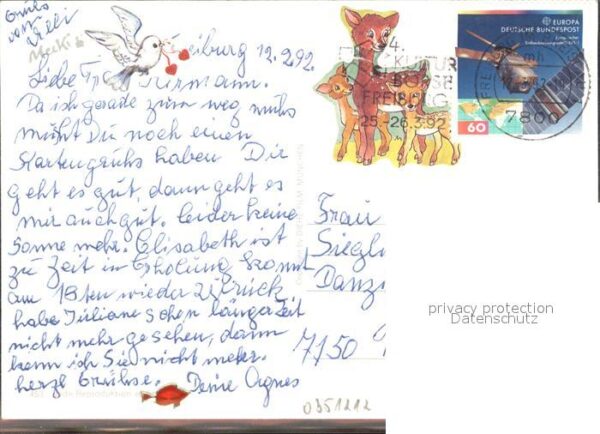 Gruß
von Willi
Mecki
Freiburg 12.2.92
Liebe Frau
Da ich gerade zum weg muhs
muht Du noch einen
Kartengruhs haben Dir
geht es gut, dann geht es
mir auch gut. leider keine
Sonne mehr. Elisabeth ist
zu Zeit in Erholung kommt
am 18ten wieder zurück
habe Juliane schon länger Zeit
nicht mehr gesehen, dann
kann ich Sie nicht mehr.
herzl Grühse. Deine Agnes
4.
KULTUR
BÖRSE
FREIBURG
25.-26.3.92
EUROPA
DEUTSCHE BUNDESPOST
60
7800
Frau
Siegl
Danz
7150
privacy protection
Datenschutz
0351212